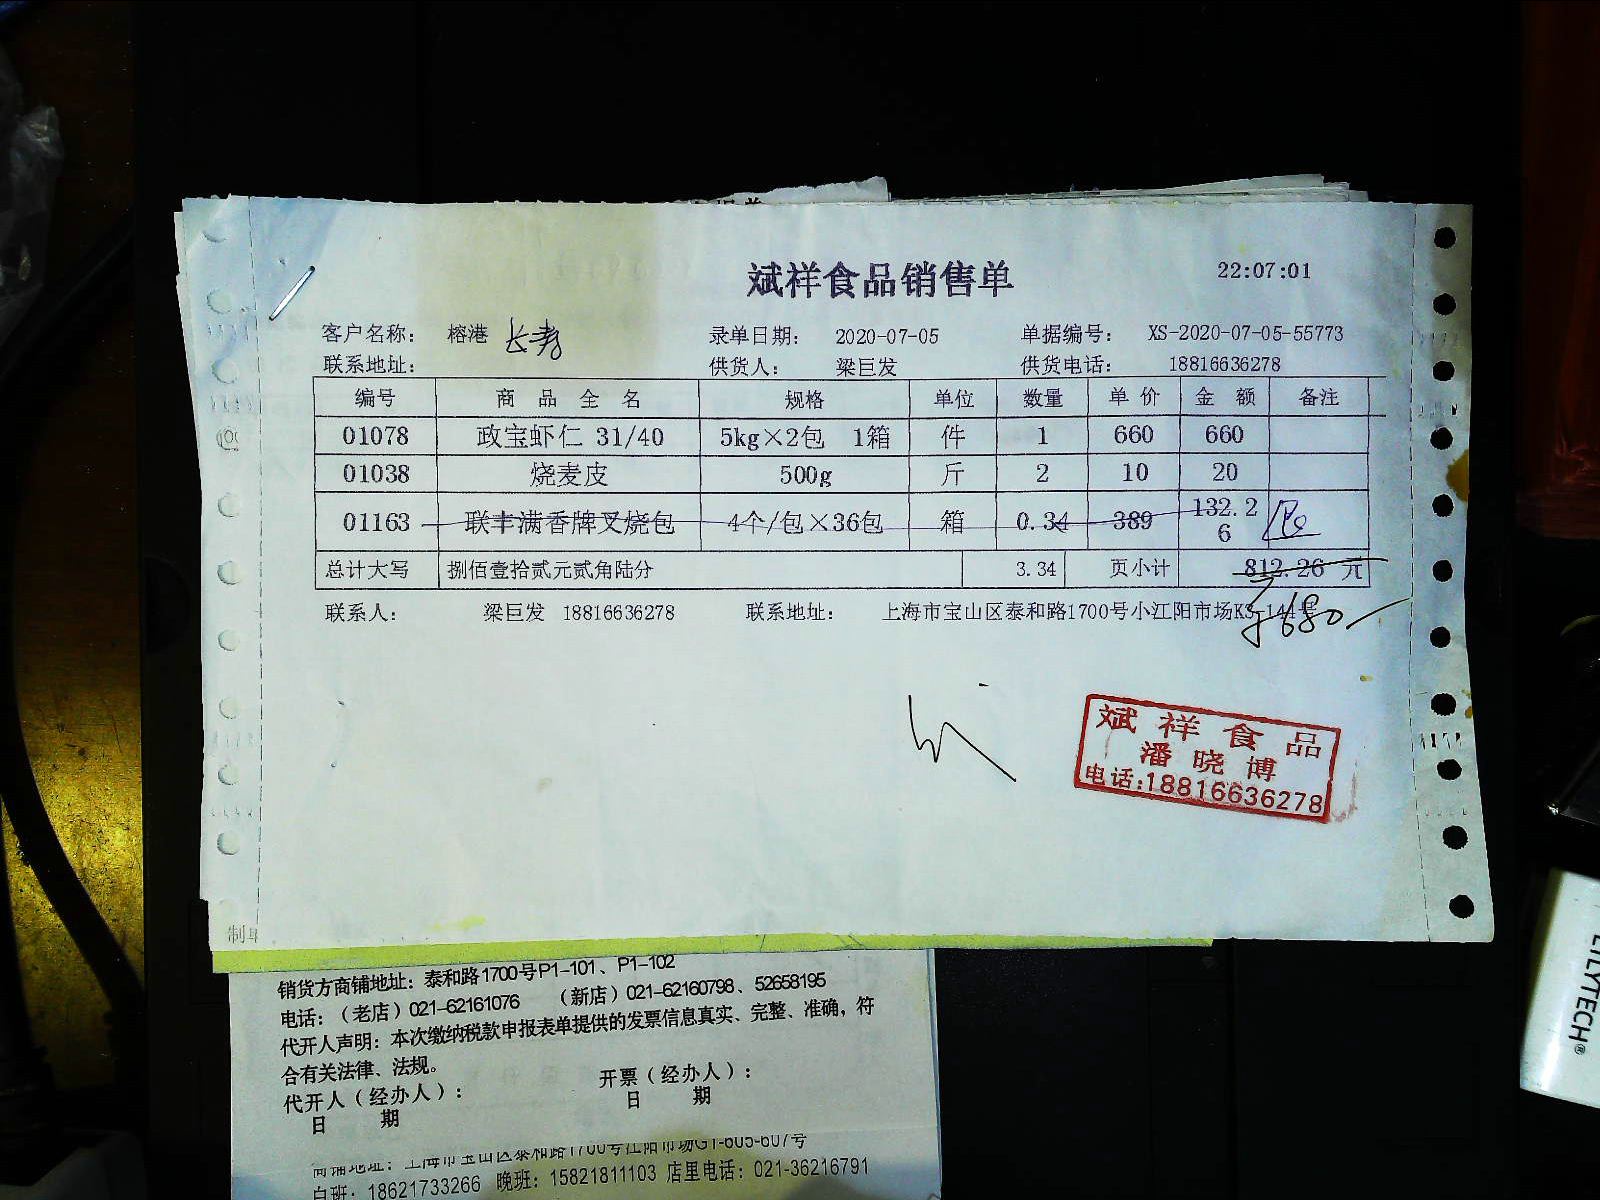 斌祥食品销售单 22:07:01
客户名称： 榕港 长寿 录单日期： 2020-07-05 单据编号： XS-2020-07-05-55773
联系地址： 供货人： 梁巨发 供货电话： 18816636278
编号 商品全名 规格 单位 数量 单价 金额 备注
01078 政宝虾仁 31/40 5kg×2包 1箱 件 1 660 660
01038 烧麦皮 500g 斤 2 10 20
01163 联丰满香牌叉烧包 4个/包×36包 箱 0.34 389 132.26
总计大写 捌佰壹拾贰元贰角陆分 3.34 页小计 812.26 元
联系人： 梁巨发 18816636278 联系地址： 上海市宝山区泰和路1700号小江阳市场K3-144号
680
斌祥食品
潘晓博
电话:18816636278
制单
销货方商铺地址：泰和路1700号P1-101、P1-102
电话：（老店）021-62161076 （新店）021-62160798、52658195
代开人声明：本次缴纳税款申报表单提供的发票信息真实、完整、准确，符
合有关法律、法规。
代开人（经办人）： 开票（经办人）：
日 期 日 期
商铺地址：上海市宝山区泰和路1700号江阳市场G1-605-607号
白班：18621733266 晚班：15821811103 店里电话：021-36216791
LILYTECH®